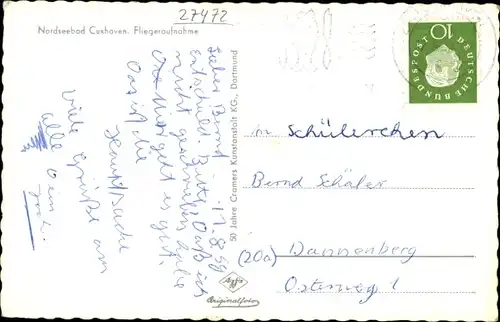 27472
Nordseebad Cuxhaven. Fliegeraufnahme
17.8.59
Lieber Bernd
Entschuld. Bitte, daß ich
nicht geschrieben habe
Mir geht es gut.
Das ist die
Hauptsache
Viele Grüße an
alle Dein
50 Jahre Cramers Kunstanstalt KG., Dortmund
Agfa
Originalfoto
DEUTSCHE BUNDESPOST
10
An Schülerchen
Bernd Schäfer
(20a) Dannenberg
Osterweg 1